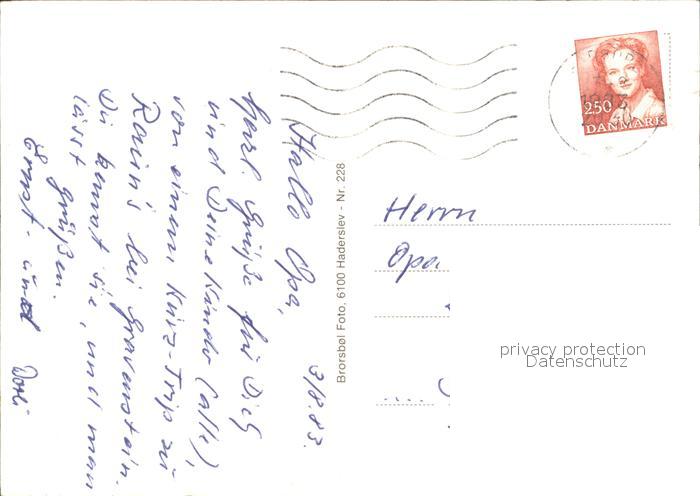 3/8.83.
Hallo Opa,
herzl. Grüße für Dich
und Deine Kinder (alle),
von einem Kurz-Trip zu
Rain's bei Gravenstein.
Du kennst sie, und man
lässt grüßen.
Ernst - und Dorli
Brorsbøl Foto, 6100 Haderslev - Nr. 228
1983
250
DANMARK
Herrn
Opa
privacy protection
Datenschutz